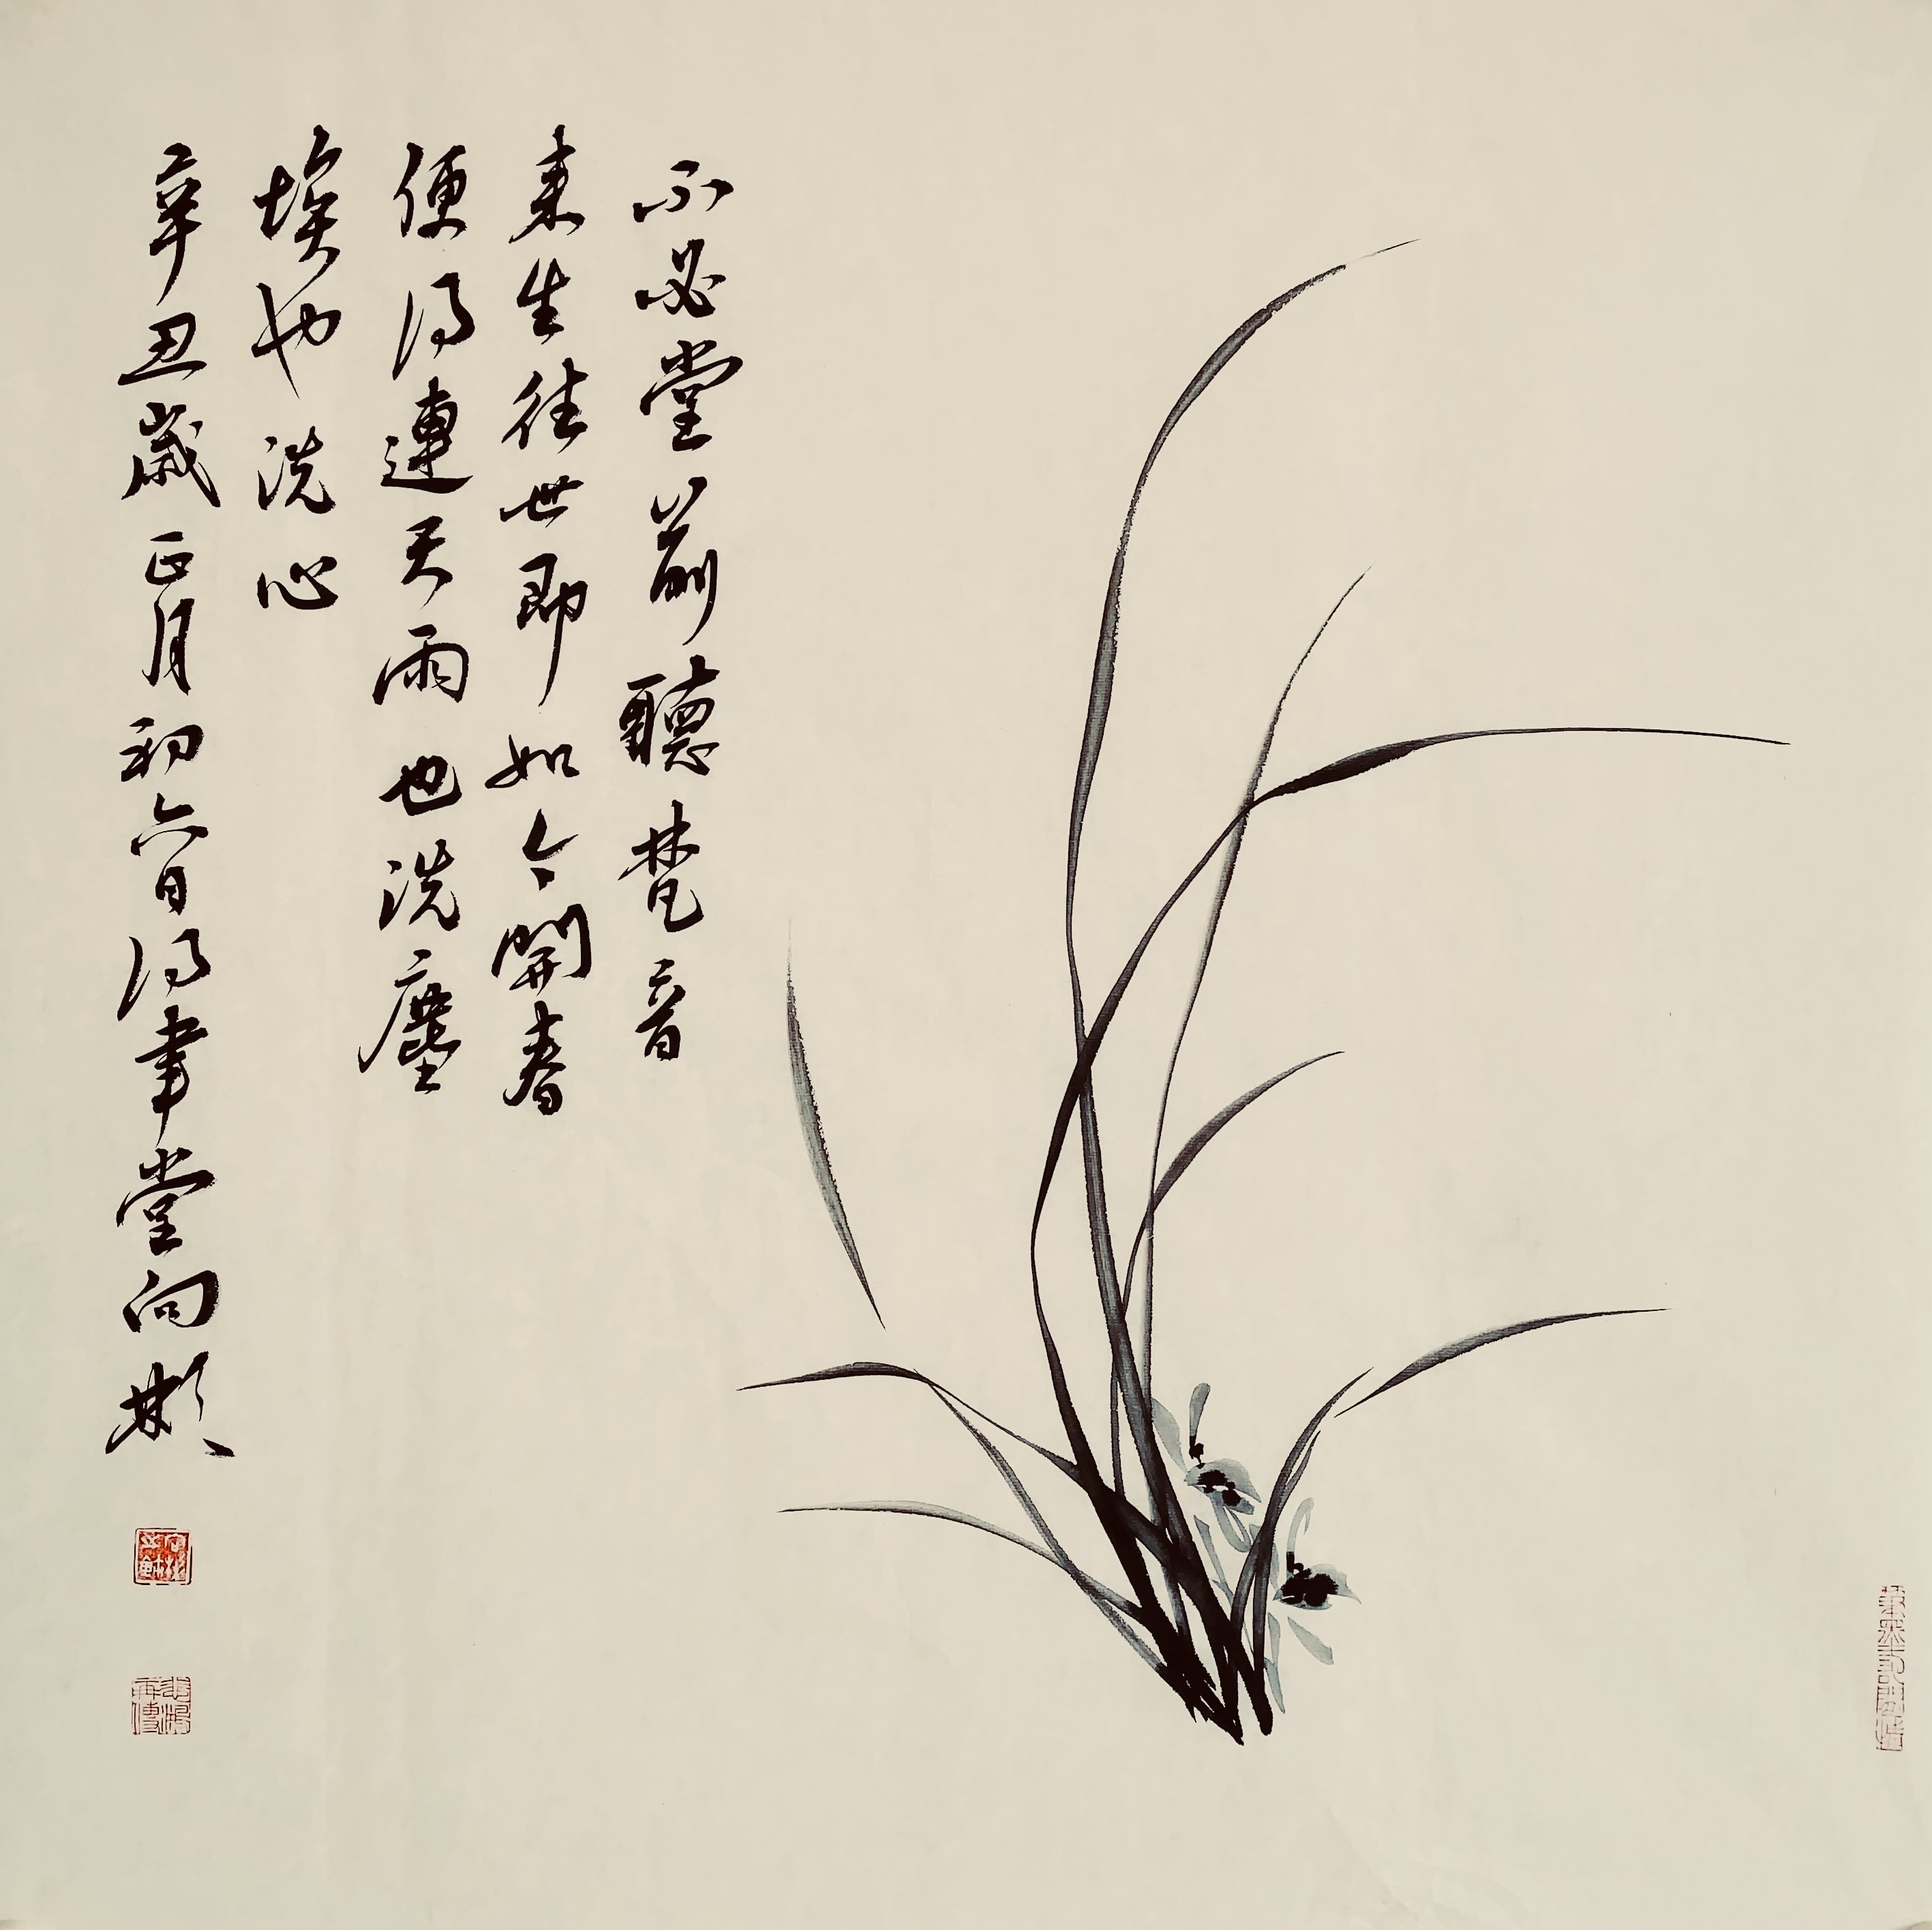 不必堂前聽梵音
來生往世即如今開春
便得連天雨也洗塵
埃也洗心
辛丑歲正月初六日得聿堂向彬
悲鴻再傳